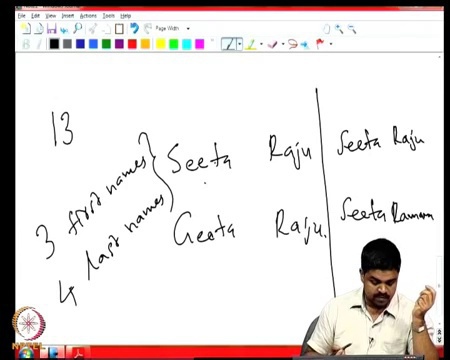 File Edit View Insert Actions Tools Help
Page Width
B
13
3 first names
4 last names
Seeta Raju
Geeta Raju.
Seeta Raju
Seeta Ramana